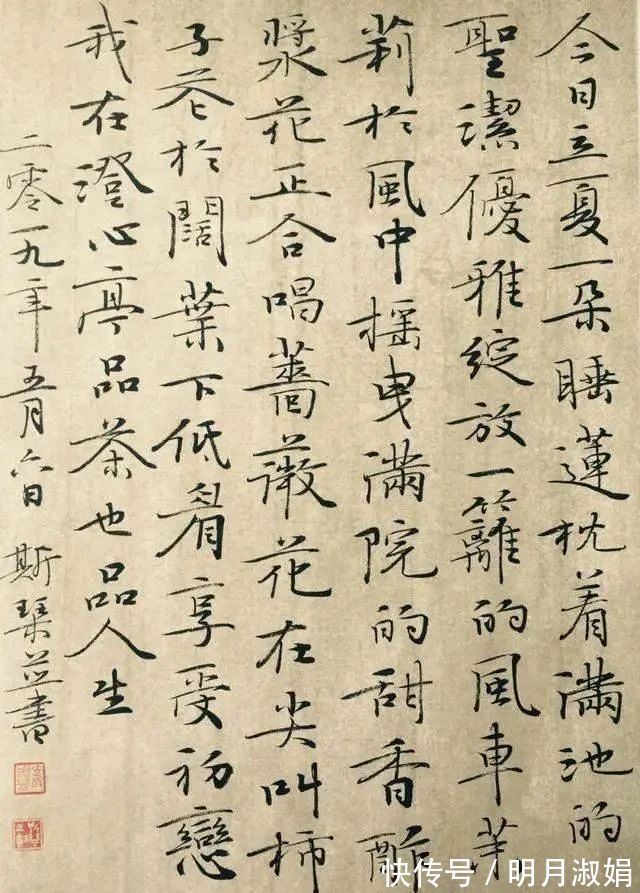 今日立夏一朵睡蓮枕着滿池的
聖潔優雅綻放一籬的風車茉
莉於風中摇曳滿院的甜香酢
漿花正合唱薔薇花在尖叫柿
子花於闊葉下低眉享受初戀
我在澄心亭品茶也品人生
二零一九年五月六日 斯琹並書
快传号/明月淑娟